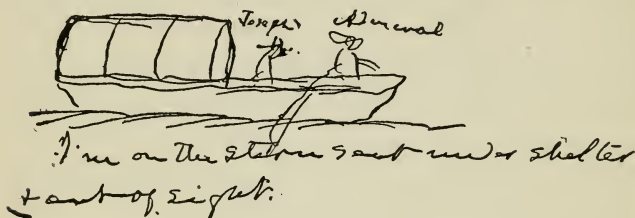 Joseph Admiral
I'm on the stern seat under shelter
+ out of sight.